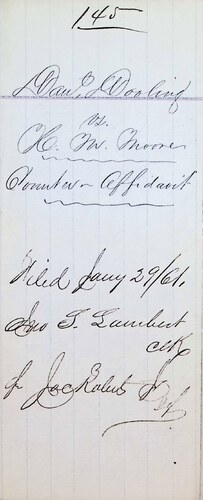 145
Danl Dooling
vs.
H. M. Moore
Counter Affidavit
Filed Jany 29/61.
Jno T. Lambert
Clk
Jas Roberts Jr